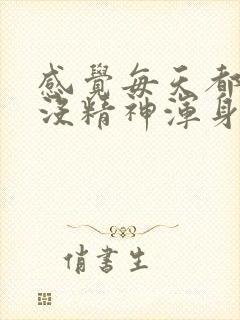 感覺每天都
沒精神渾身
俏書生